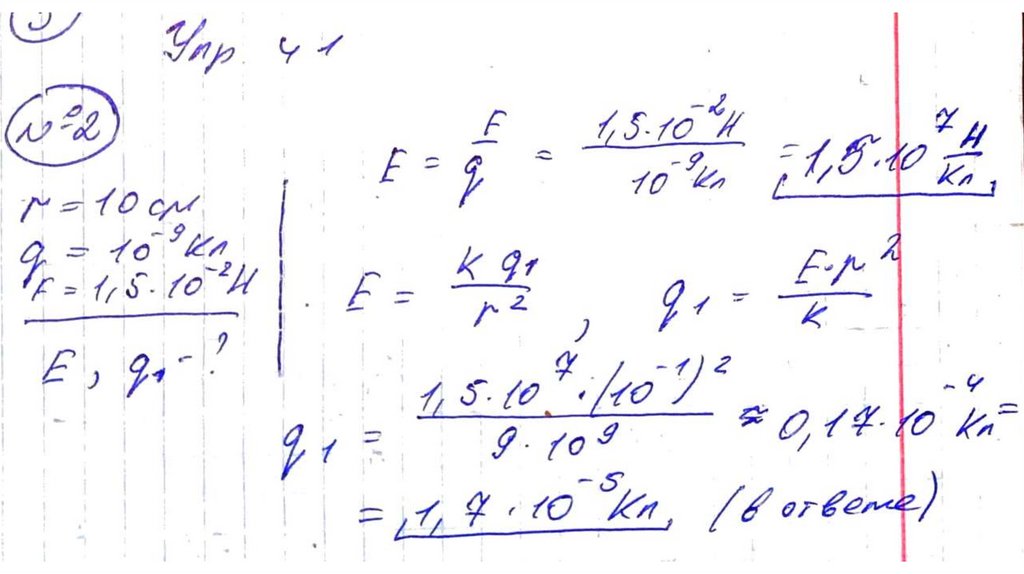 Упр. 41
№2
r = 10 см
q = 10⁻⁹ Кл
F = 1,5·10⁻² Н
E, q₁ - ?
E = F/q = 1,5·10⁻² Н / 10⁻⁹ Кл = 1,5·10⁷ Н/Кл
E = K q₁ / r², q₁ = E·r² / K
q₁ = 1,5·10⁷·(10⁻¹)² / 9·10⁹ ≈ 0,17·10⁻⁴ Кл =
= 1,7·10⁻⁵ Кл (в ответе)